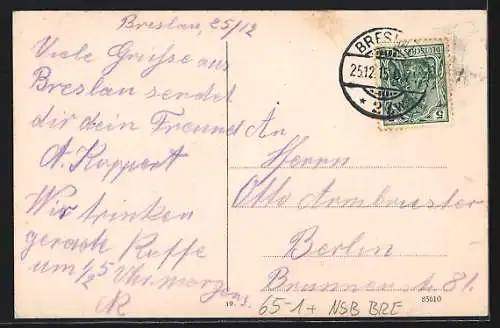 Breslau, 25/12
Viele Grüsse aus
Breslau sendet
dir dein Freund
A. Ruppert
Wir trinken
gerade Kaffe
um ½5 Uhr morgens
An
Herrn
Otto Armbruster
Berlin
Brunnenstr 81.
BRESLAU
25.12.15
* 2
5
19.
65-1+ NSB BRE
85610